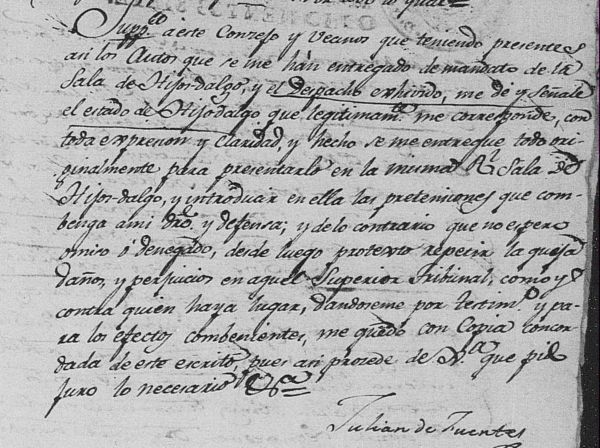 Supp.co a este Conzejo y Vecinos que teniendo presentes
asi los Autos que se me hàn entregado de mandato de la
Sala de Hijos-dalgo, y el Despacho exhivido, me de y Señale
el estado de Hijodalgo que legitimam.te me corresponde, con
toda expresion y claridad, y hecho se me entregue todo ori-
ginalmente para presentarlo en la misma R.l Sala de
Hijos-dalgo, y introducir en ella las pretensiones que com-
benga a mi dro. y defensa; y de lo contrario que no espero
omiso ò denegado, desde luego protexto repetir la quexa
daños, y perjuicios en aquel Superior Tribunal, como y
contra quien haya lugar, dandoseme por testim.o y pa-
ra los efectos combenientes, me quedo con Copia concor-
dada de este escrito, pues asi prozede de
Juro lo necesario &.a
Julian de Fuentes